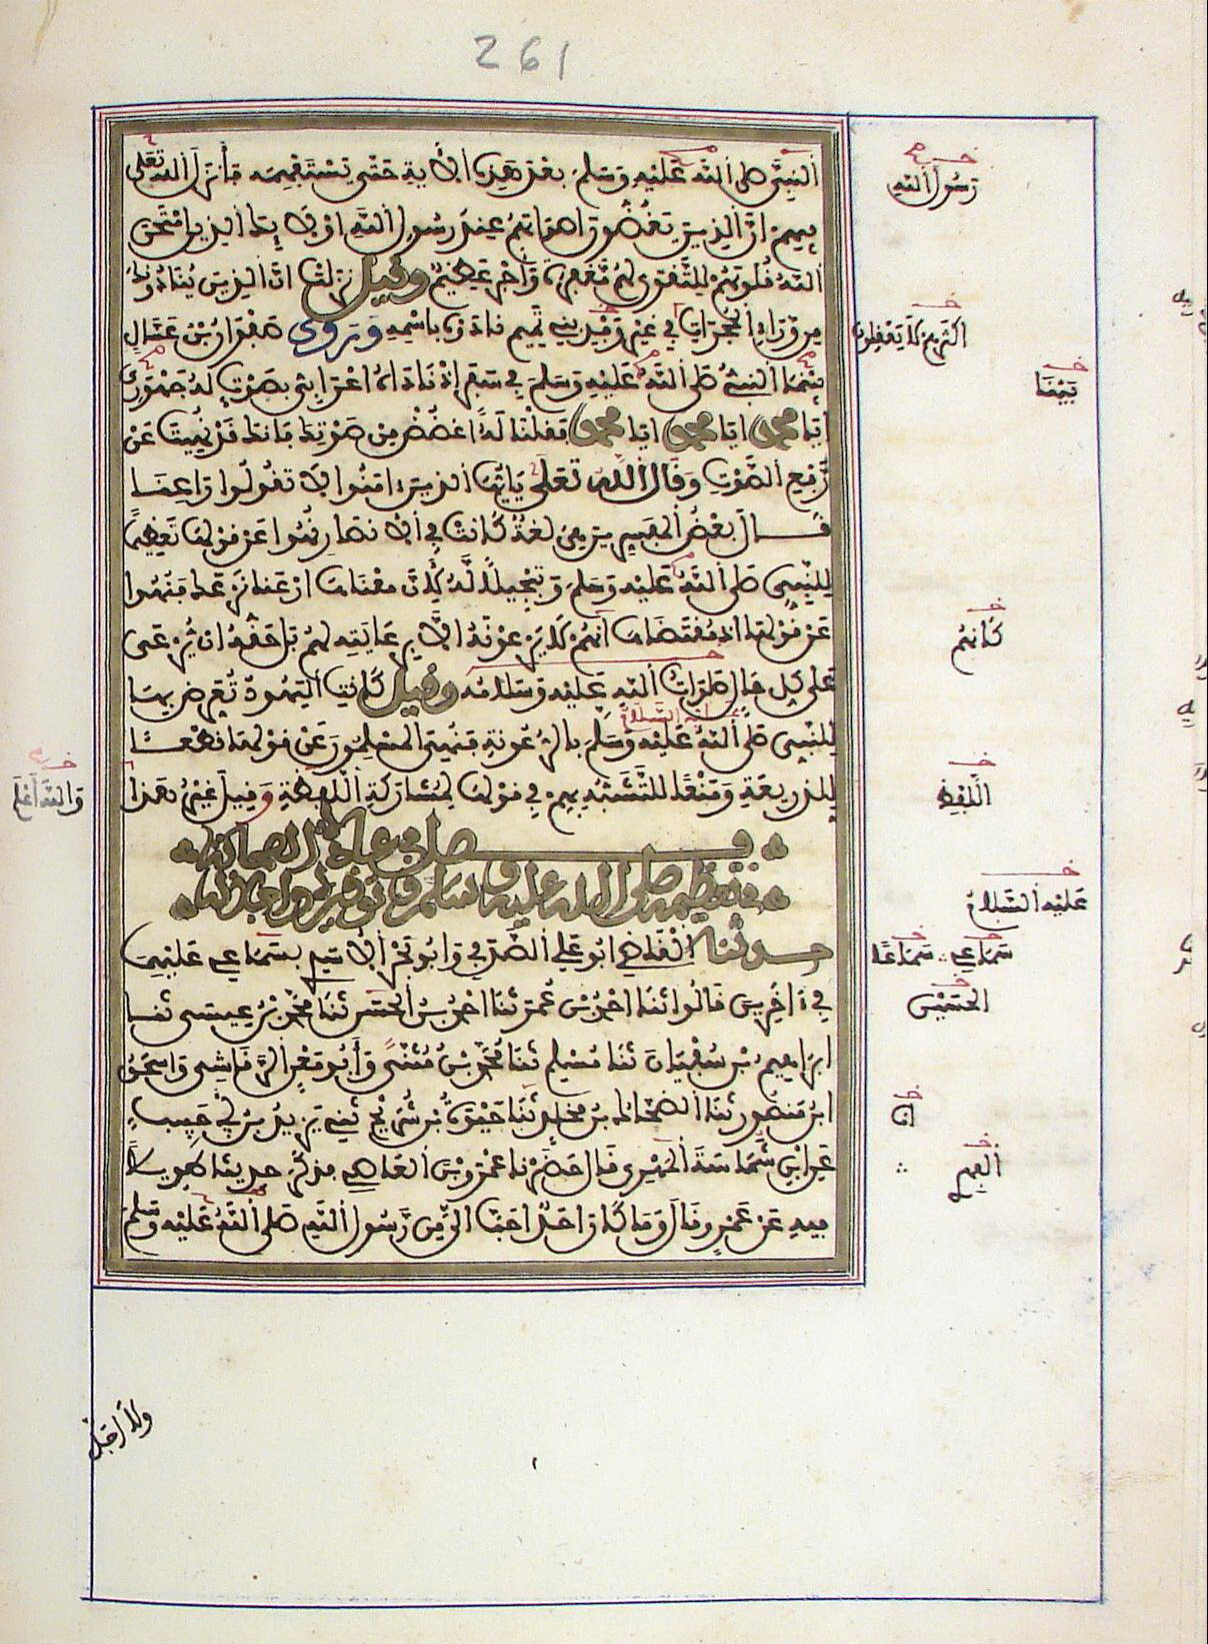 261
النبي صلى الله عليه وسلم بعد هذه الاية حتى يستفهمه فأنزل الله تعلى
فيهم ان الذين يغضون اصواتهم عند رسول الله اولايك الذين امتحن
الله قلوبهم للتقوى لهم مغفرة وأجر عظيم وقيل نزلت ان الذين ينادونك
من وراء الحجرات في غير وقد بني تميم نادوه باسمه وروى صفوان بن عسال
بينما النبي صلى الله عليه وسلم في سفر إذ ناداه اعرابي بصوت له جهوري
ايا محمد ايا محمد ايا محمد فقلنا له اغضض من صوتك فانك قد نهيت عن
رفع الصوت وقال الله تعلى يايها الذين ءامنوا لا تقولوا راعنا
قال بعض المفسرين هي لغة كانت في الانصار نهوا عن قولها تعظيما
للنبي صلى الله عليه وسلم وتبجيلا له لأن معناها ارعنا نرعك فنهوا
عن قولها اذ مقتضاها انهم لا يرعونه الا برعايته لهم بل حقه ان يرعى
على كل حال صلوات الله عليه وسلامه وقيل كانت اليهود تعرض بها
للنبي صلى الله عليه وسلم بالرعونة فنهي المسلمون عن قولها قطعا
للذريعة ومنعا للتشبه بهم في قولها لمشاركة اللفظة وقيل غير هذا
فصل في عادة الصحابة
في تعظيمه صلى الله عليه وسلم وتوقيره واجلاله
حدثنا القاضي ابو علي الصدفي وابو بحر الاسدي بسماعي عليهما
في ءاخرين قالوا ثنا احمد بن عمر ثنا احمد بن الحسن ثنا محمد بن عيسى ثنا
ابراهيم بن سفيان ثنا مسلم ثنا محمد بن مثنى وأبو معن الرقاشي واسحق
ابن منصور ثنا الضحاك بن مخلد ثنا حيوة بن شريح ثني يزيد بن أبي حبيب
عن ابن شماسة المهري قال حضرنا عمرو بن العاصي فذكر حديثا طويلا
فيه عن عمرو قال وما كان احد احب الي من رسول الله صلى الله عليه وسلم
رسول الله
اكثرهم لا يعقلون
بينا
كأنهم
اللفظ
والله أعلم
عليه السلام
سماعي سماعا
الحسين
ولا أجل